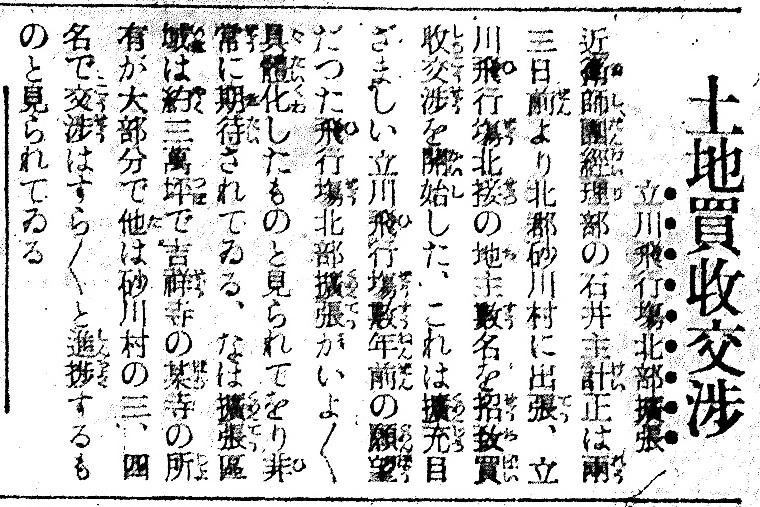 土地買收交涉
立川飛行場北部擴張
近衞師團經理部の石井主計正は兩
三日前より北郡砂川村に出張、立
川飛行場北接の地主數名を招致買
收交涉を開始した、これは擴充目
ざましい立川飛行場數年前の願望
だつた飛行場北部擴張がいよ〳〵
具體化したものと見られてをり非
常に期待されてゐる、なほ擴張區
域は約三萬坪で吉祥寺の某寺の所
有が大部分で他は砂川村の三、四
名で交涉はすら〳〵と進捗するも
のと見られてゐる